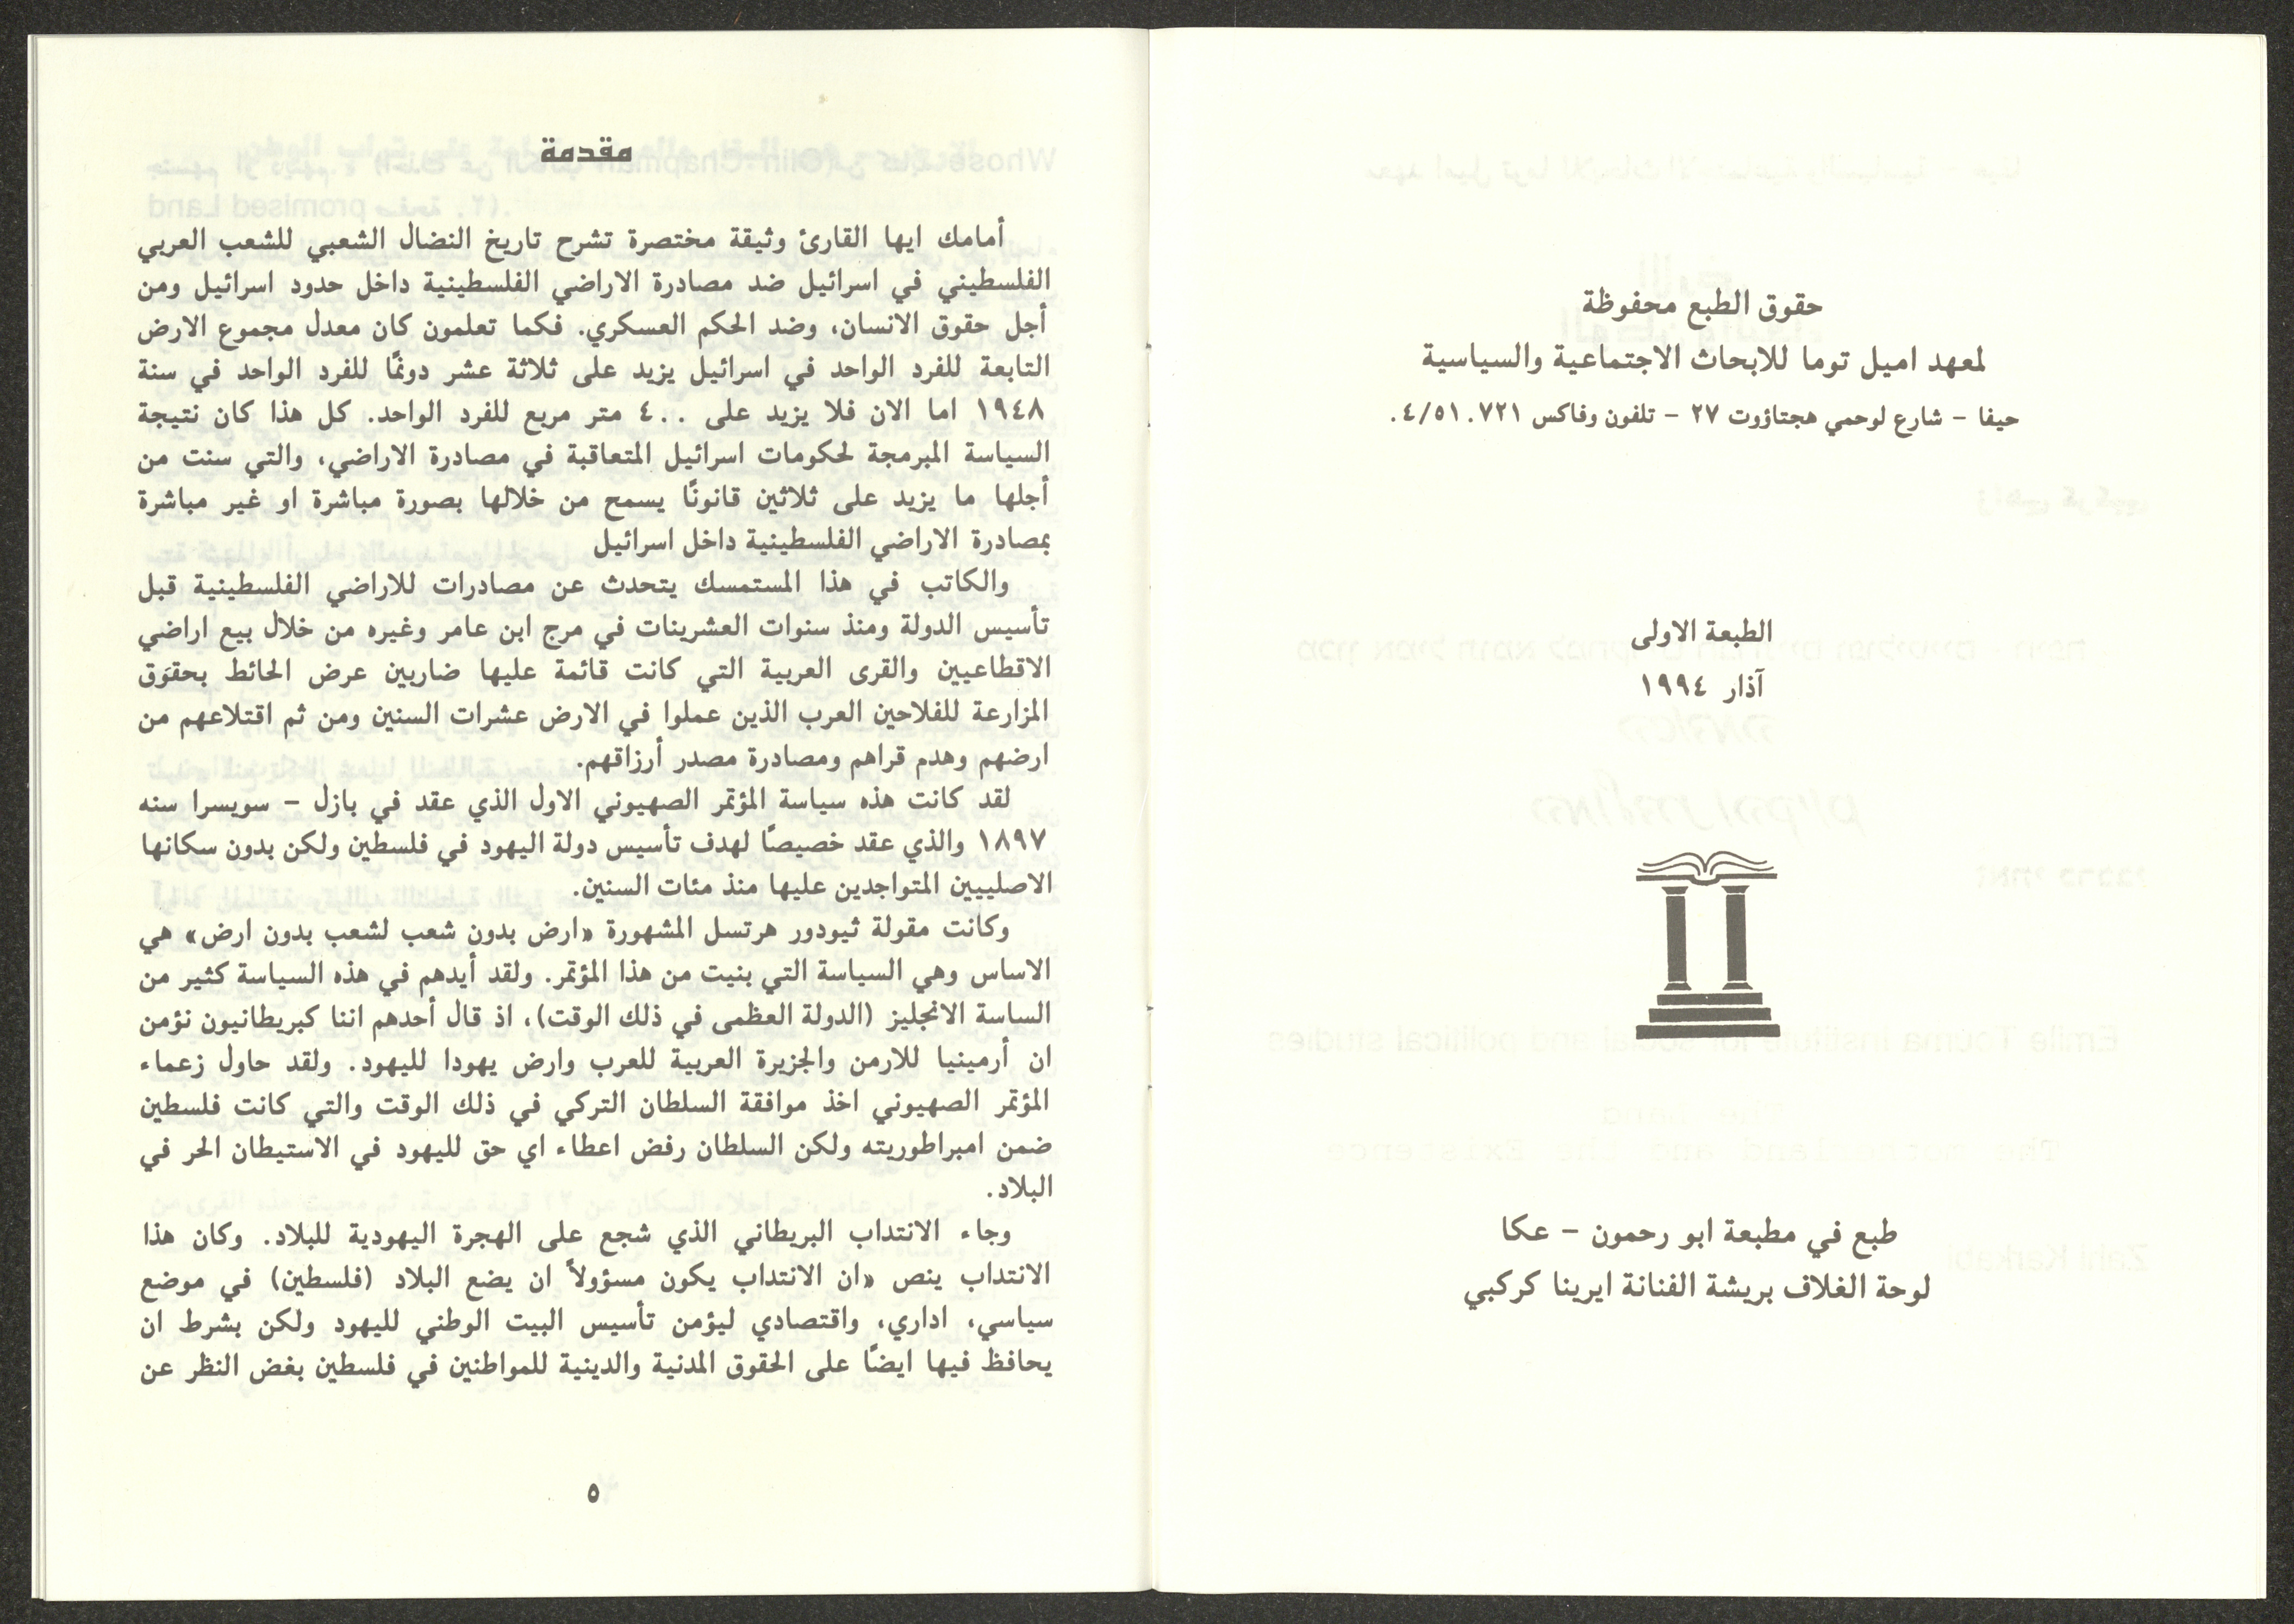 حقوق الطبع محفوظة
لمعهد اميل توما للابحاث الاجتماعية والسياسية
حيفا - شارع لوحمي هجتاؤوت ٢٧ - تلفون وفاكس ٠٤/٥١٠٧٢١
الطبعة الاولى
آذار ١٩٩٤
طبع في مطبعة ابو رحمون - عكا
لوحة الغلاف بريشة الفنانة ايرينا كركبي
مقدمة
أمامك ايها القارئ وثيقة مختصرة تشرح تاريخ النضال الشعبي للشعب العربي
الفلسطيني في اسرائيل ضد مصادرة الاراضي الفلسطينية داخل حدود اسرائيل ومن
أجل حقوق الانسان، وضد الحكم العسكري. فكما تعلمون كان معدل مجموع الارض
التابعة للفرد الواحد في اسرائيل يزيد على ثلاثة عشر دونمًا للفرد الواحد في سنة
١٩٤٨ اما الان فلا يزيد على ٤٠٠ متر مربع للفرد الواحد. كل هذا كان نتيجة
السياسة المبرمجة لحكومات اسرائيل المتعاقبة في مصادرة الاراضي، والتي سنت من
أجلها ما يزيد على ثلاثين قانونًا يسمح من خلالها بصورة مباشرة او غير مباشرة
بمصادرة الاراضي الفلسطينية داخل اسرائيل
والكاتب في هذا المستمسك يتحدث عن مصادرات للاراضي الفلسطينية قبل
تأسيس الدولة ومنذ سنوات العشرينات في مرج ابن عامر وغيره من خلال بيع اراضي
الاقطاعيين والقرى العربية التي كانت قائمة عليها ضاربين عرض الحائط بحقوق
المزارعة للفلاحين العرب الذين عملوا في الارض عشرات السنين ومن ثم اقتلاعهم من
ارضهم وهدم قراهم ومصادرة مصدر أرزاقهم.
لقد كانت هذه سياسة المؤتمر الصهيوني الاول الذي عقد في بازل - سويسرا سنه
١٨٩٧ والذي عقد خصيصًا لهدف تأسيس دولة اليهود في فلسطين ولكن بدون سكانها
الاصلييين المتواجدين عليها منذ مئات السنين.
وكانت مقولة ثيودور هرتسل المشهورة «ارض بدون شعب لشعب بدون ارض» هي
الاساس وهي السياسة التي بنيت من هذا المؤتمر. ولقد أيدهم في هذه السياسة كثير من
الساسة الانجليز (الدولة العظمى في ذلك الوقت)، اذ قال أحدهم اننا كبريطانيون نؤمن
ان أرمينيا للارمن والجزيرة العربية للعرب وارض يهودا لليهود. ولقد حاول زعماء
المؤتمر الصهيوني اخذ موافقة السلطان التركي في ذلك الوقت والتي كانت فلسطين
ضمن امبراطوريته ولكن السلطان رفض اعطاء اي حق لليهود في الاستيطان الحر في
البلاد.
وجاء الانتداب البريطاني الذي شجع على الهجرة اليهودية للبلاد. وكان هذا
الانتداب ينص «ان الانتداب يكون مسؤولاً ان يضع البلاد (فلسطين) في موضع
سياسي، اداري، واقتصادي ليؤمن تأسيس البيت الوطني لليهود ولكن بشرط ان
يحافظ فيها ايضًا على الحقوق المدنية والدينية للمواطنين في فلسطين بغض النظر عن
٥